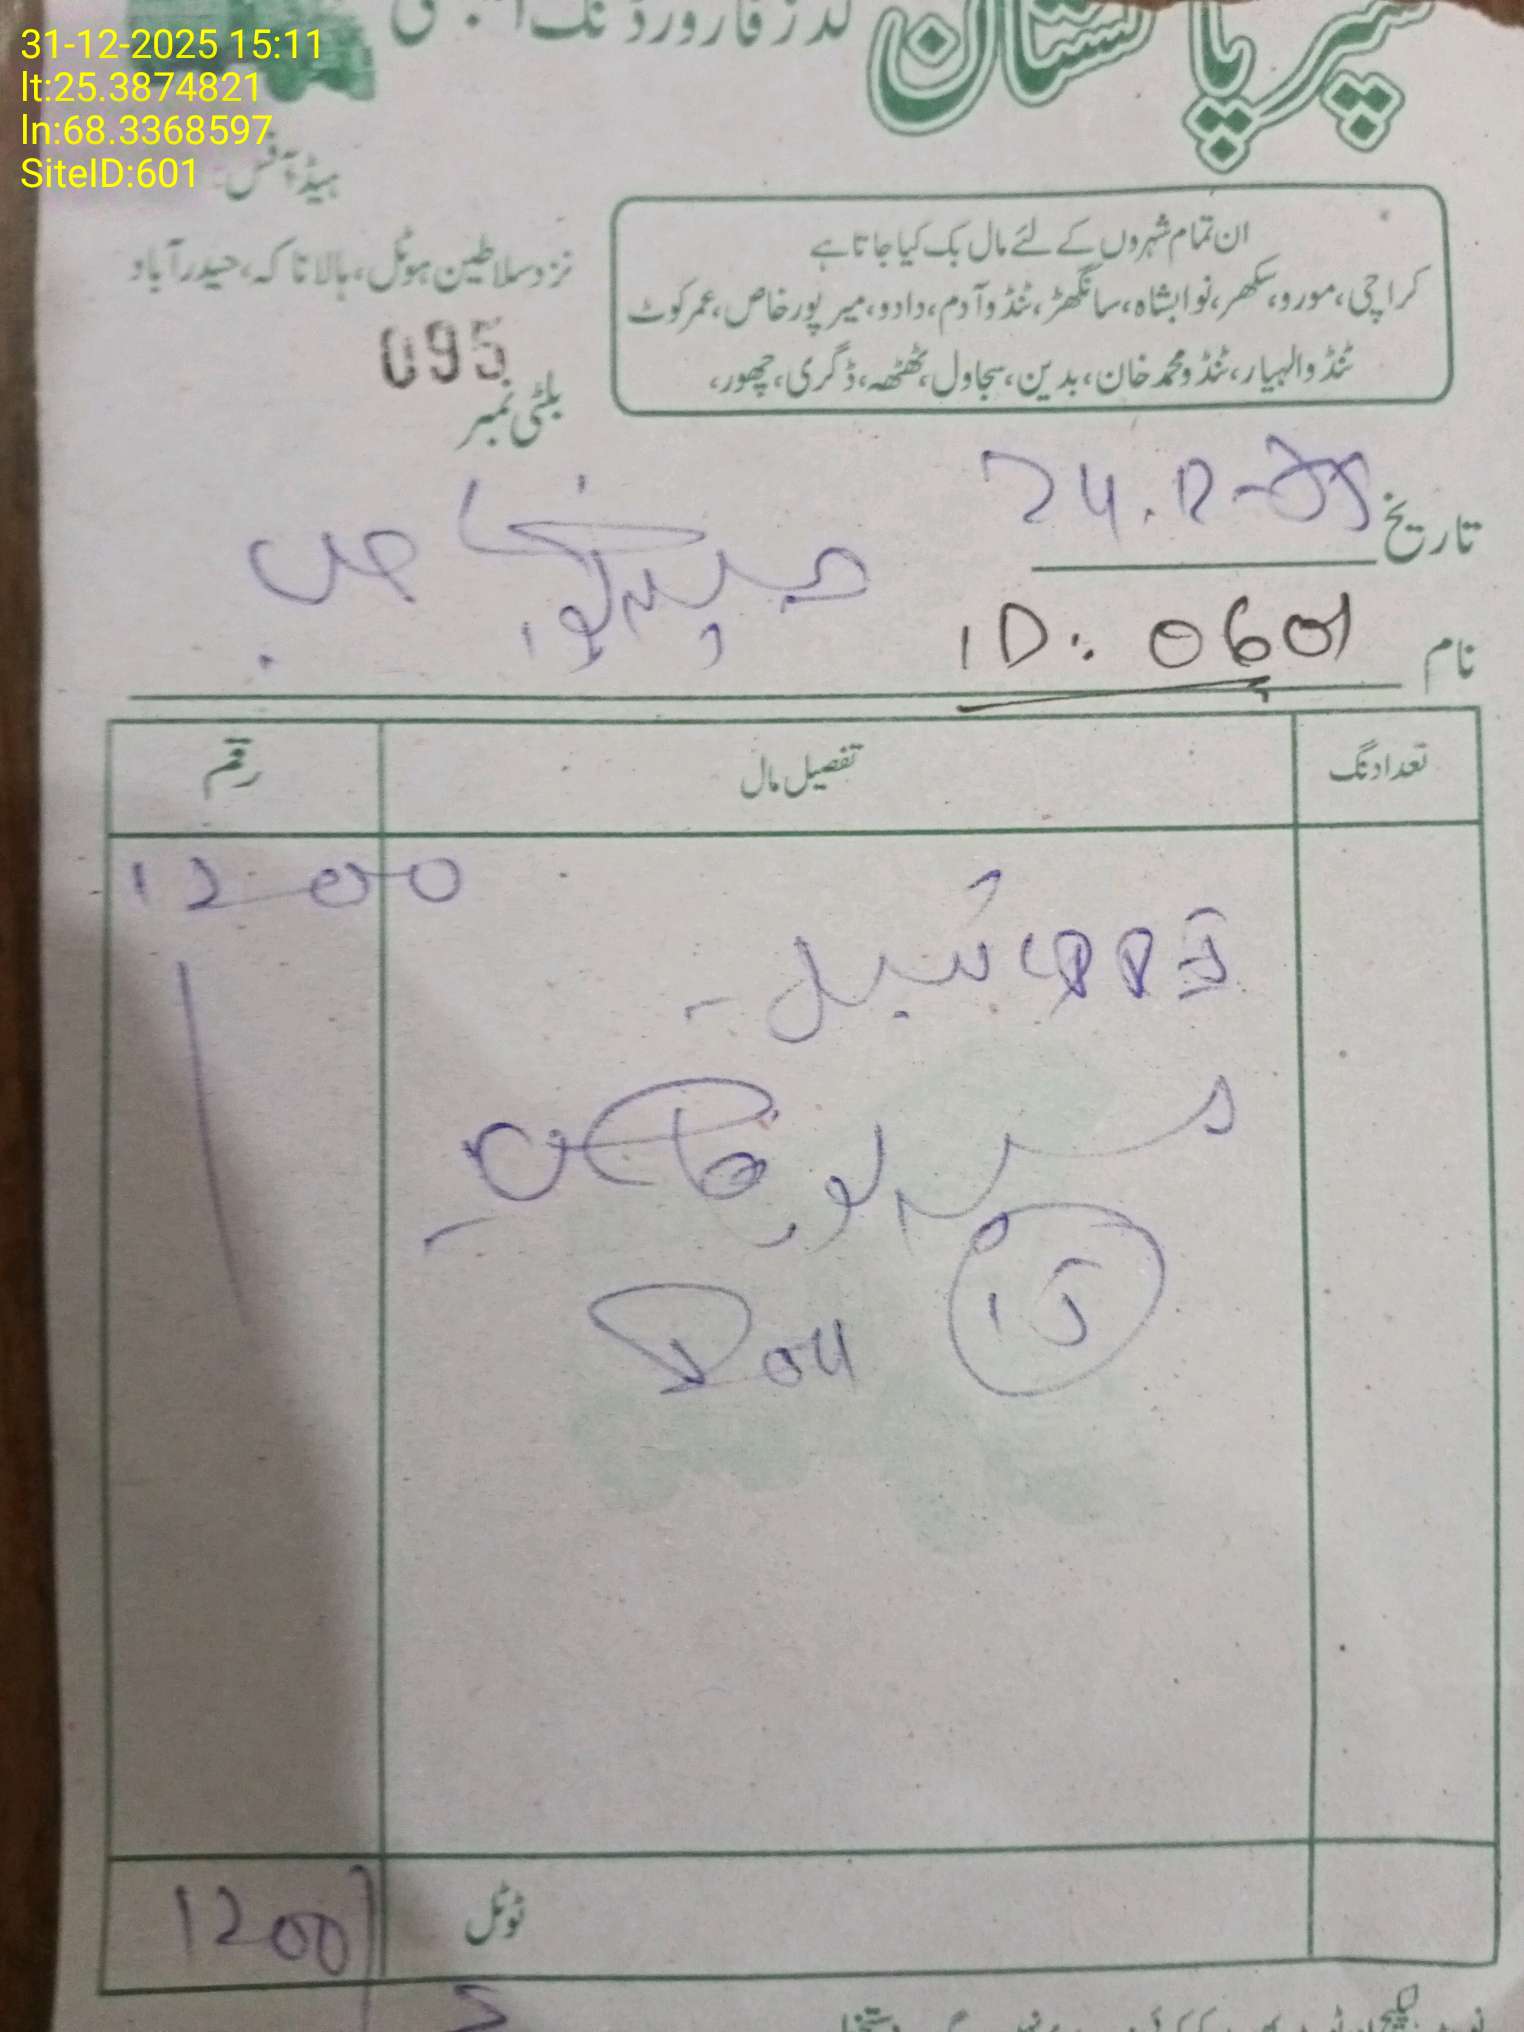 31-12-2025 15:11
lt:25.3874821
ln:68.3368597
SiteID:601
سپر پاکستان
گڈز فارورڈنگ
ہیڈ آفس:
نزد سلاطین ہوٹل، ہالا ناکہ، حیدرآباد
ان تمام شہروں کے لئے مال بک کیا جاتا ہے
کراچی، مورو، سکھر، نوابشاہ، سانگھڑ، ٹنڈوآدم، دادو، میرپورخاص، عمرکوٹ
ٹنڈوالہیار، ٹنڈومحمدخان، بدین، سجاول، ٹھٹھہ، ڈگری، چھور،
095
بلٹی نمبر
تاریخ 24.12-25
نام ID: 0601
تعداد نگ تفصیل مال رقم
1200
میرپور خاص
15
ٹوٹل 1200